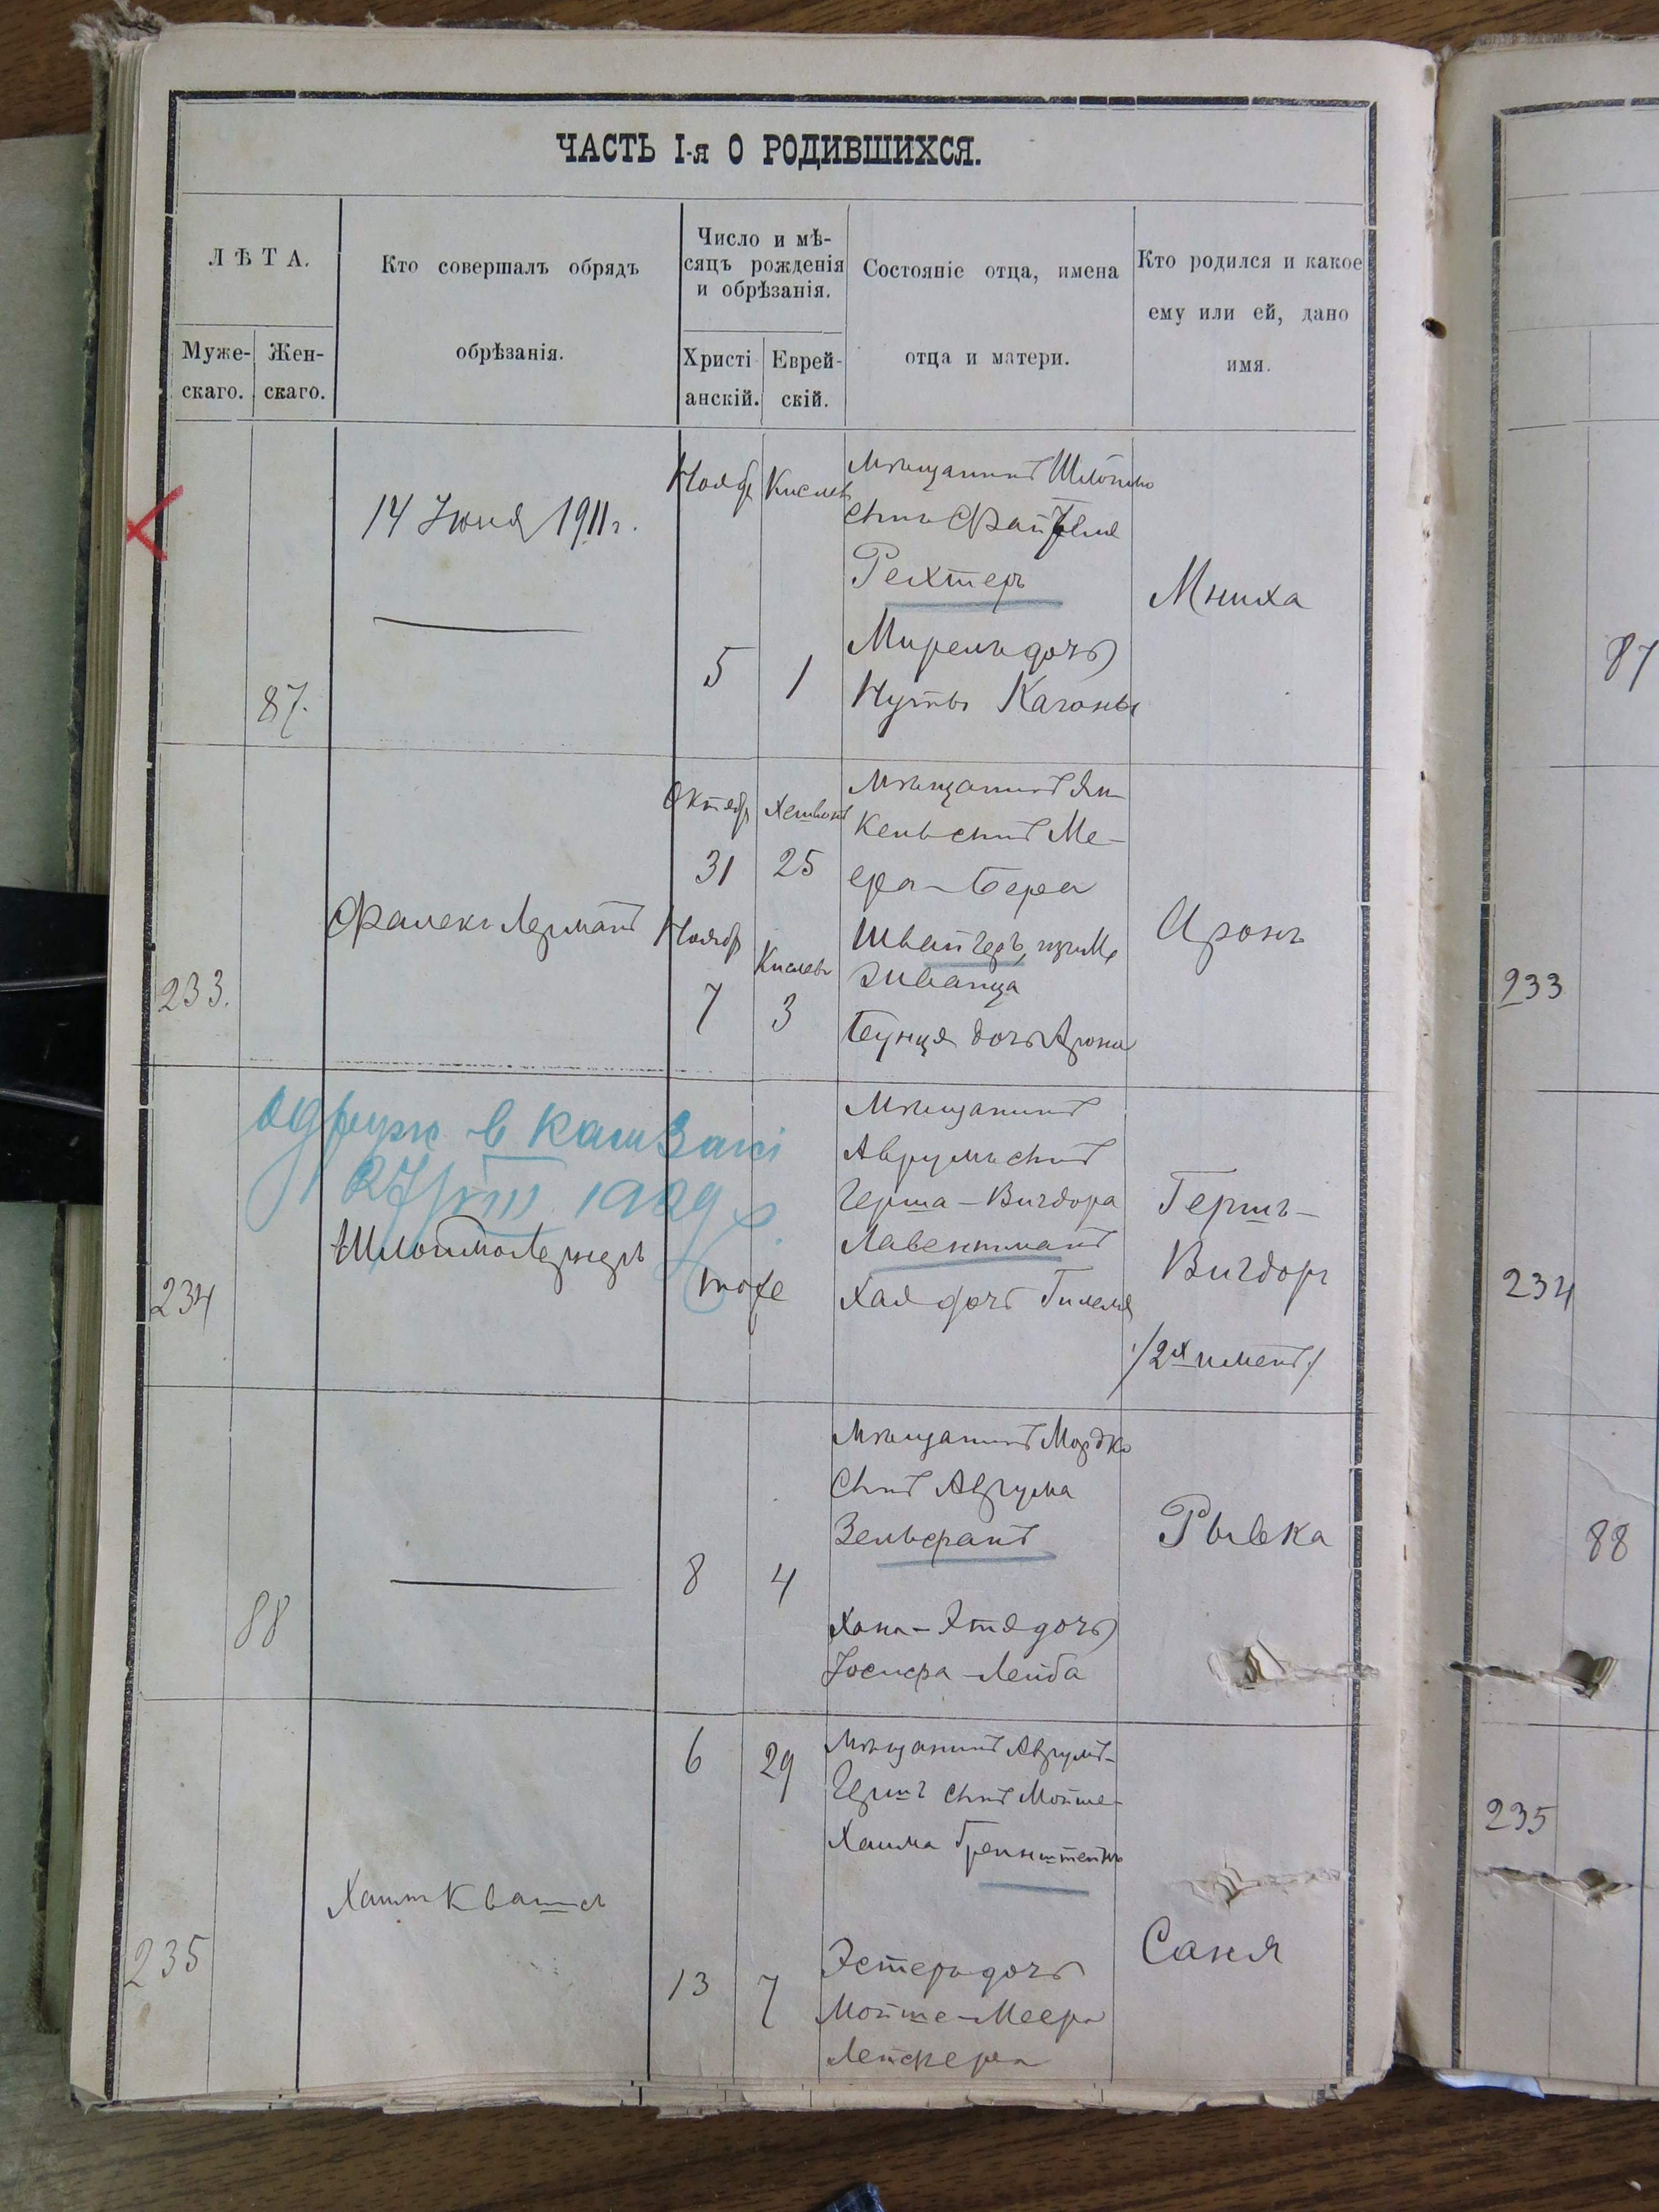 ЧАСТЬ I-я О РОДИВШИХСЯ.
ЛѢТА.
Муже-
скаго.
Жен-
скаго.
Кто совершалъ обрядъ
обрѣзанія.
Число и мѣ-
сяцъ рожденія
и обрѣзанія.
Христі
анскій.
Еврей-
скій.
Состояніе отца, имена
отца и матери.
Кто родился и какое
ему или ей, дано
имя.
87.
14 Июня 1911 г.
Ноябр
5
Кислев
1
Мѣщанинъ Шлойма
сынъ Файвеля
Рехтеръ
Мирель дочь
Нуты Каганъ
Мниха
87
233.
Фалекъ Лерманъ
Октябр
31
Ноябр
7
Хешвонъ
25
Кислевъ
3
Мѣщанинъ Ян-
кель сынъ Ме-
ера-Бера
Швайгеръ,
Бунця дочь Арона
Аронъ
233
в
27/VIII 1929 р
234
Шлойма Лернеръ
тоже
Мѣщанинъ
Аврумъ сынъ
Герша-Вигдора
Лавентманъ
Хая дочь Гилеля
Гершъ-
Вигдоръ
/2х именъ/
234
88
8
4
Мѣщанинъ Мордко
сынъ Аврума
Зельфанъ
Хана-Этя дочь
Іосифа-Лейба
Рывка
88
235
Хаимъ Квашъ
6
29
13
7
Мѣщанинъ Аврумъ-
Гершъ сынъ Мойше-
Хаима Гренштейнъ
Эстеръ дочь
Мойше-Меера
Лейскера
Саня
235